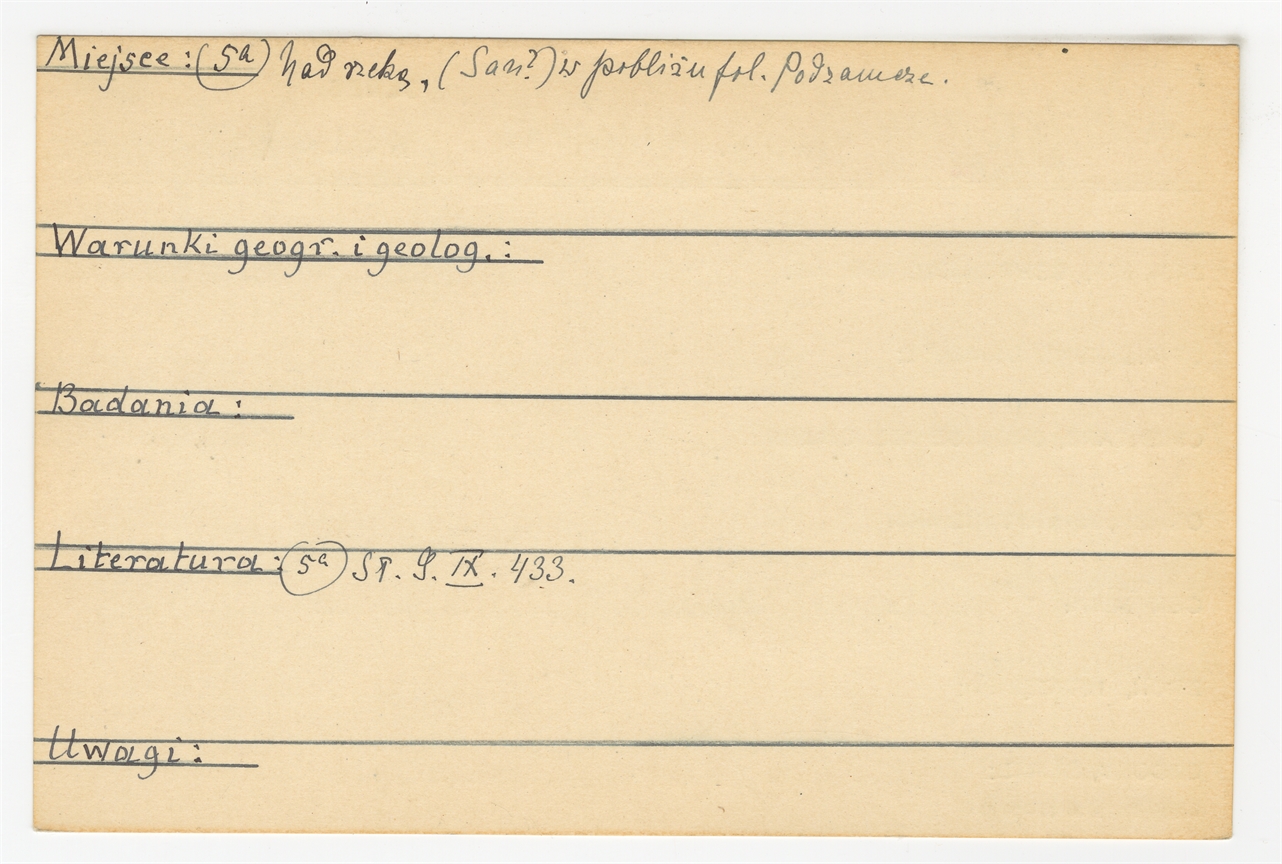 Miejsce : (5a) nad rzeką, (San?) w pobliżu fol. Podzamcze.
Warunki geogr. i geolog. :
Badania :
Literatura : (5a) Sł. G. IX. 433.
Uwagi :